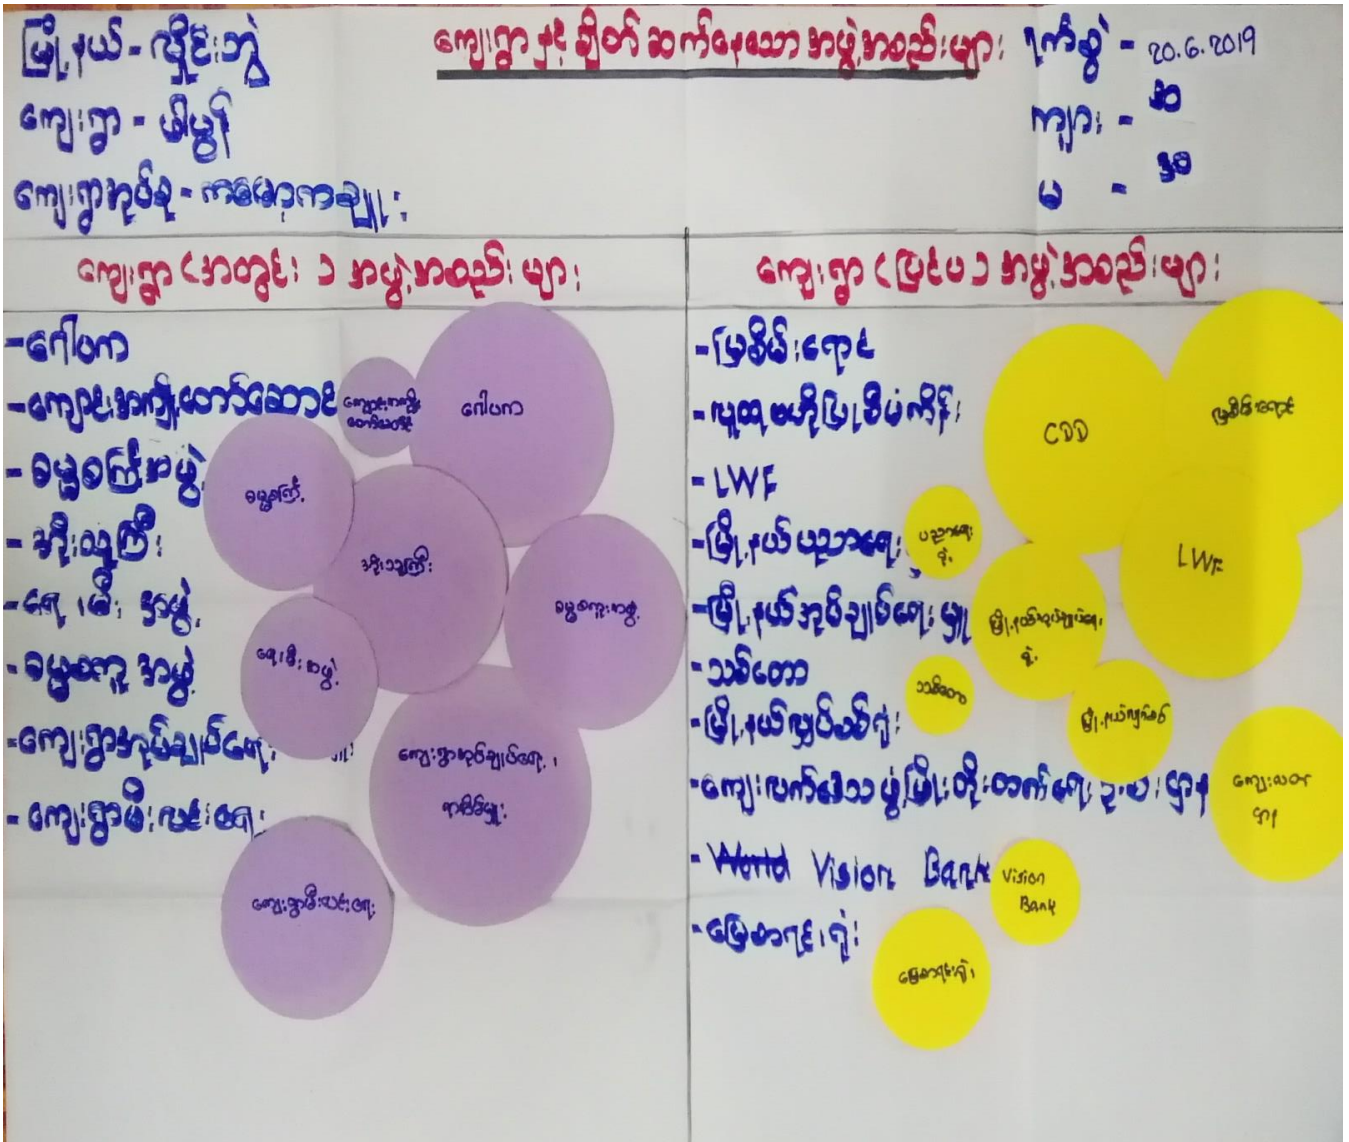 မြို့နယ် - လှိုင်းဘွဲ
ကျေးရွာ -
ကျေးရွာအုပ်စု -
ကျေးရွာနှင့် ချိတ်ဆက်နေသော အဖွဲ့အစည်းများ
ရက်စွဲ - 20.6.2019
ကျား -
မ -
ကျေးရွာ (အတွင်း) အဖွဲ့အစည်းများ
- ဂေါပက
- ကျောင်းအကျိုးတော်ဆောင်
- ဓမ္မစကြာအဖွဲ့
- အိုးသူကြီး
- ရေ၊မီး အဖွဲ့
- အဖွဲ့
- ကျေးရွာအုပ်ချုပ်ရေး
- ကျေးရွာမီးလင်းရေး
ကျောင်းအကျိုး
တော်ဆောင်
ဂေါပက
ဓမ္မစကြာ
အိုးသူကြီး
ရေ၊မီး အဖွဲ့
ကျေးရွာအုပ်ချုပ်ရေး၊
ရာအိမ်မှူး
ကျေးရွာမီးလင်းရေး
ကျေးရွာ (ပြင်ပ) အဖွဲ့အစည်းများ
- မြစိမ်းရောင်
- လူထုဗဟိုပြုစီမံကိန်း
- LWF
- မြို့နယ်ပညာရေး
- မြို့နယ်အုပ်ချုပ်ရေးမှူး
- သစ်တော
- မြို့နယ်လျှပ်စစ်ရုံး
- ကျေးလက်ဒေသဖွံ့ဖြိုးတိုးတက်ရေးဦးစီးဌာန
- World Vision Bank
- မြေစာရင်းရုံး
CDD
မြစိမ်းရောင်
ပညာရေး
ရုံး
LWF
မြို့နယ်အုပ်ချုပ်ရေး
ရုံး
သစ်တော
မြို့နယ်လျှပ်စစ်
ကျေးလက်
ဌာန
Vision
Bank
မြေစာရင်းရုံး